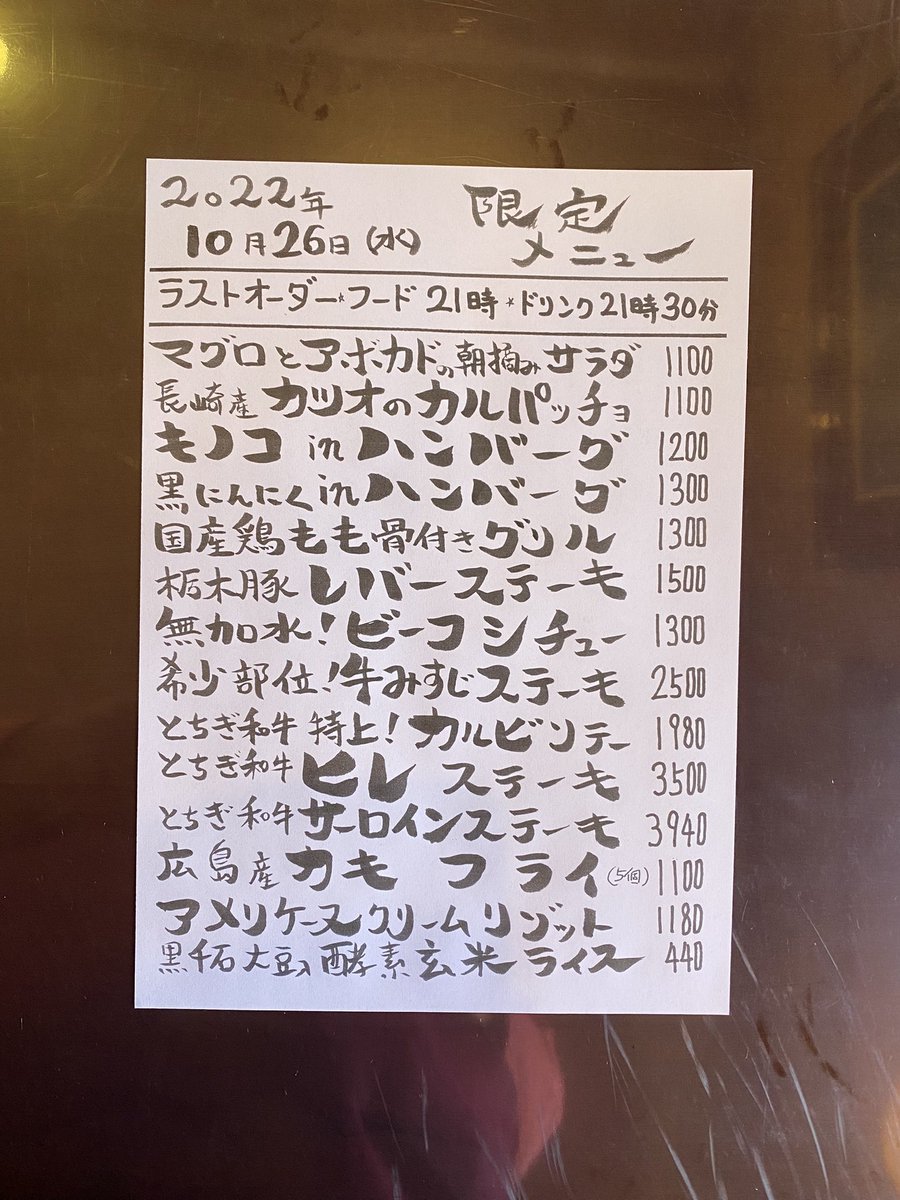 2022年
10月26日(水)
限定
メニュー
ラストオーダー*フード 21時*ドリンク21時30分
マグロとアボカドの朝摘みサラダ 1100
長崎産 カツオのカルパッチョ 1100
キノコ in ハンバーグ 1200
黒にんにく in ハンバーグ 1300
国産鶏もも骨付きグリル 1300
栃木豚 レバーステーキ 1500
無加水!ビーフシチュー 1300
希少部位!牛みすじステーキ 2500
とちぎ和牛 特上!カルビソテー 1980
とちぎ和牛 ヒレ ステーキ 3500
とちぎ和牛 サーロインステーキ 3940
広島産 カキ フライ(5個) 1100
アメリケーヌクリームリゾット 1180
黒千石大豆入酵素玄米ライス 440